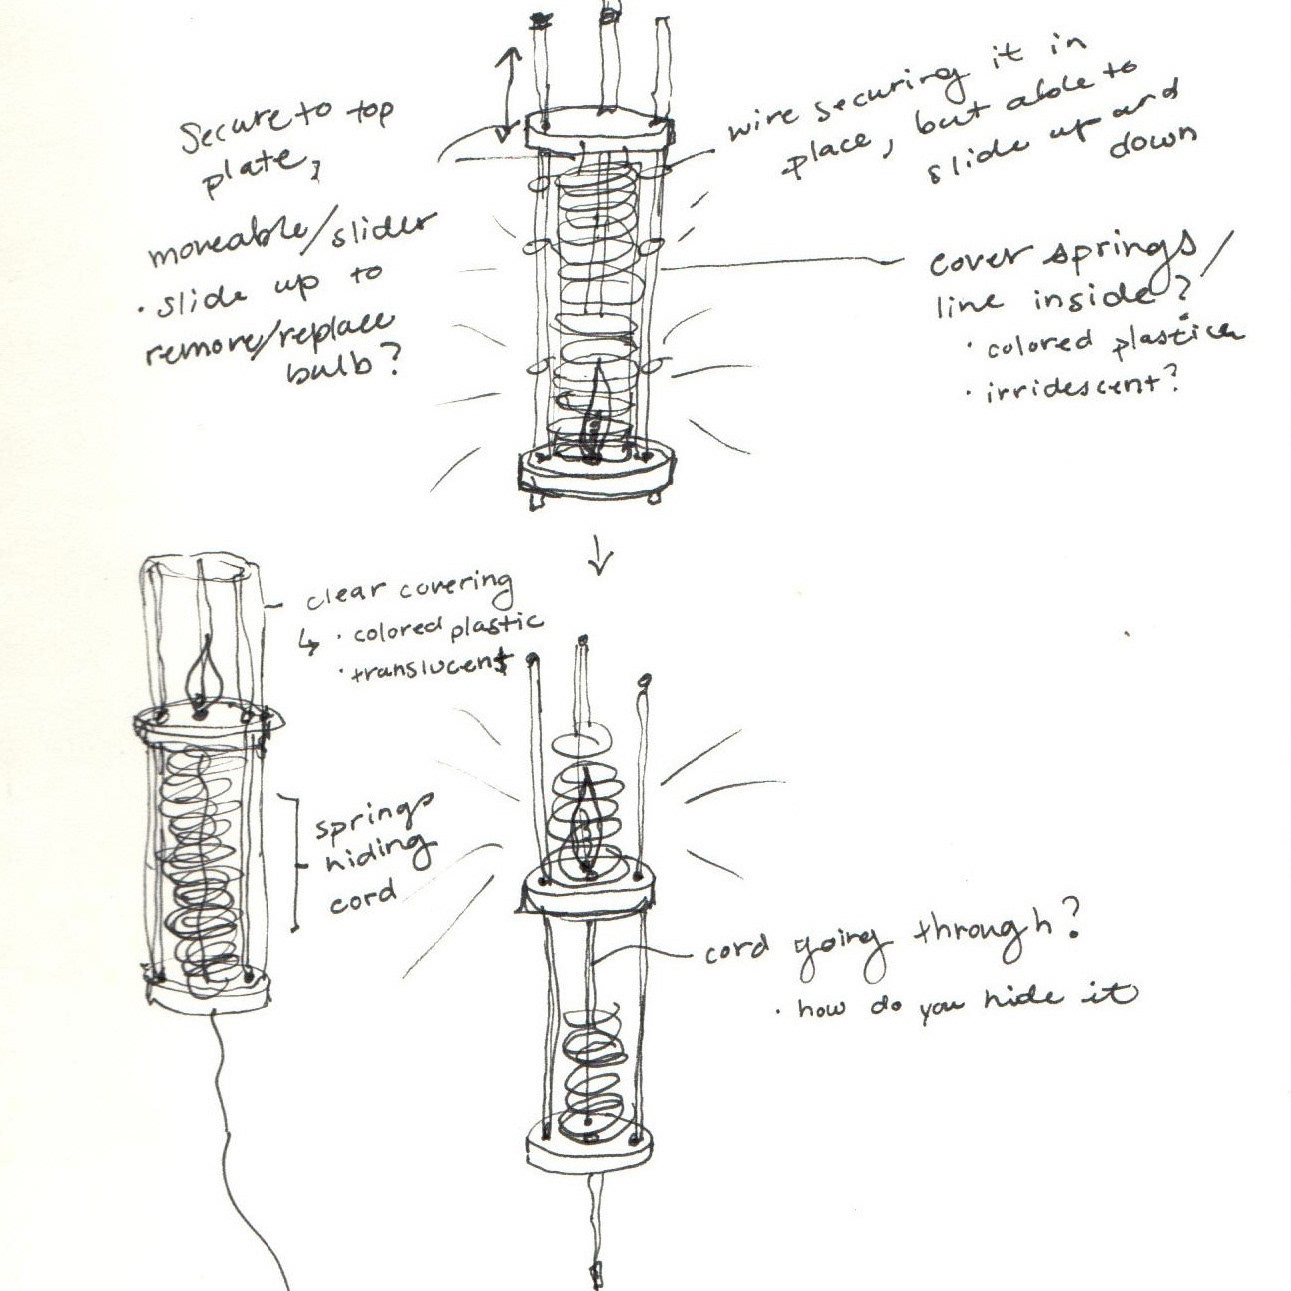 Secure to top
plate,
moveable/slider
· slide up to
remove/replace
bulb?
wire securing it in
place, but able to
slide up and
down
cover springs/
line inside?
· colored plastic
· irridescent?
clear covering
↳ · colored plastic
· translucent
springs
hiding
cord
cord going through?
· how do you hide it